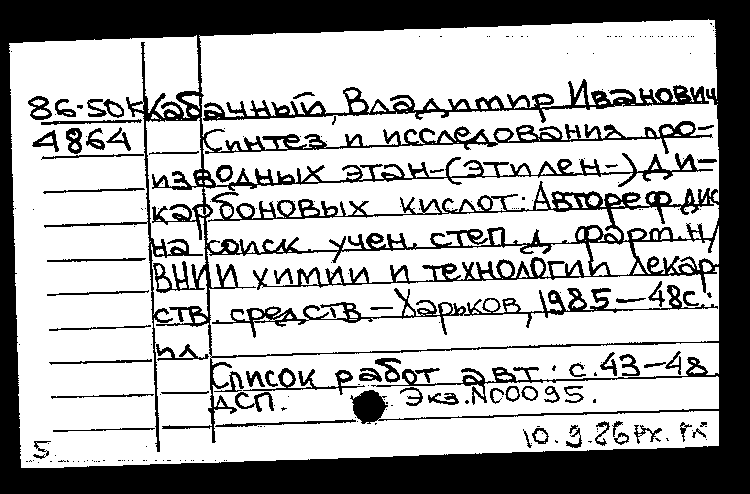 86-50К Кабачный, Владимир Иванович
4864 Синтез и исследования про-
изводных этан-(этилен-) ди-
карбоновых кислот: Автореф. дис
на соиск. учен. степ. д. фарт. н/
ВНИИ химии и технологии лекар-
ств. средств. - Харьков, 1985. - 48с.:
ил.
Список работ авт.: с. 43-48.
ДСП. Экз. N00095.
10.9.86
5